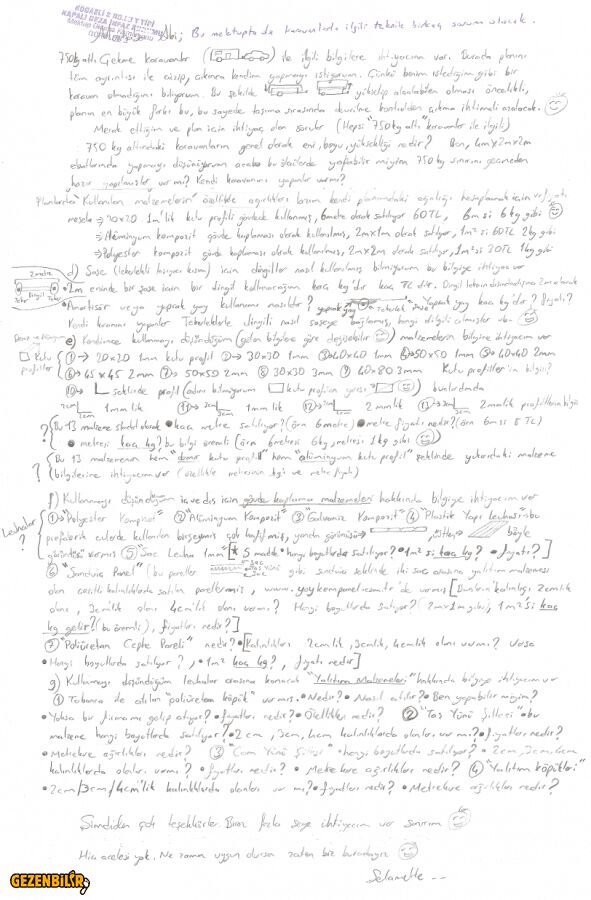 KOCAELİ 2 NO.LU T TİPİ
KAPALI CEZA İNFAZ KURUMU
Abi; Bu mektupta da karavanlarla ilgili teknik birkaç sorum olacak.
750kg altı Çekme karavanlar ( ) ile ilgili bilgilere ihtiyacım var. Burada planını
tüm ayrıntısı ile çizip, çıkınca kendim yapmayı istiyorum. Çünkü benim istediğim gibi bir
karavan olmadığını biliyorum. Bu şekilde yükselip alçalabilen olması öncelikli,
planın en büyük farkı bu, bu sayede taşıma sırasında devrilme kontrolden çıkma ihtimali azalacak.
Merak ettiğim ve plan için ihtiyaç olan sorular (Hepsi "750kg altı" karavanlar ile ilgili)
750 kg altındaki karavanların genel olarak eni, boyu, yüksekliği nedir? Ben, 4m x 2m x 2m
ebatlarında yapmayı düşünüyorum acaba bu ölçülerde yapabilir miyim 750 kg sınırını geçmeden
hazır yapılmışlar var mı? Kendi karavanını yapanlar var mı?
Kullanılan malzemelerin özellikle ağırlıkları lazım kendi planımdaki ağırlığı hesaplamak için ve fiyatı
mesela → 20x20 1m'lik kutu profili gövdede kullanılmış, 6 metre olarak satılıyor 60TL, 6m si 6 kg gibi
→ Alüminyum kompozit gövde kaplaması olarak kullanılmış, 2m x 1m olarak satılıyor, 1m² si 60TL 2kg gibi
→ Polyester kompozit gövde kaplaması olarak kullanılmış, 2m x 2m olarak satılıyor, 1m² si 30TL 1kg gibi
d) Şase (tekerlekli taşıyıcı kısım) için dingiller nasıl kullanılmış bilmiyorum bu bilgiye ihtiyaç var
2 metre
Teker Dingil Teker
• 2m eninde bir şase için bir dingil kullanacağım kaç kg'dır kaç TL dir.
• Amortisör veya yaprak yay kullanımı nasıldır? yaprak yay Tekerlek Yaprak yay kaç kg'dır? fiyatı?
Kendi karavanı yapanlar Tekerleklerle dingili nasıl şaseye bağlamış, hangi dingili almışlar
e) Kendimce kullanmayı düşündüğüm (gelen bilgilere göre değişebilir) malzemelerin bilgisine ihtiyacım var
Kutu profiller
① → 20x20 1mm kutu profil ② → 30x30 1mm ③ → 40x40 1mm ④ → 50x50 1mm ⑤ → 40x40 2mm
⑥ → 45x45 2mm ⑦ → 50x50 2mm ⑧ → 30x30 3mm ⑨ → 40x80 3mm Kutu profiller'in bilgisi?
⑩ → L şeklinde profil (adını bilmiyorum kutu profilin yarısı) bunlarında
1mm lik ⑪ → 1mm lik ⑫ → 2mm lik ⑬ → 2mmlik profillerin bilgisi
? Bu 13 malzeme standart olarak • kaç metre satılıyor? (örn 6 metre) • metre fiyatı nedir? (örn 6m si 5 TL)
• metresi kaç kg? bu bilgi önemli (örn 6metresi 6kg, metresi 1kg gibi)
? Bu 13 malzemenin hem "demir kutu profil" hem "alüminyum kutu profil" şeklinde yukardaki malzeme
bilgilerine ihtiyacım var (özellikle metresinin kg'ı ve metre fiyatı)
f) Kullanmayı düşündüğüm iç ve dış için gövde kaplama malzemeleri hakkında bilgiye ihtiyacım var
Levhalar ?
① → "Polyester Kompozit" ② "Alüminyum Kompozit" ③ "Galvaniz Kompozit" ④ "Plastik Yapı Levhası" bu
prefabrik evlerde kullanılan birşeymiş çok hafifmiş, yandan görünüşü → , üstten → böyle
görüntüsü varmış ⑤ "Sac Levha 1mm" [* 5 madde • hangi boyutlarda satılıyor? • 1m² si kaç kg? • fiyatı?]
⑥ "Sandviç Panel" (bu paneller Sac Taş Yünü Sac gibi sandviç şeklinde iki sac arasına yalıtım malzemesi
olan çeşitli kalınlıklarda satılan panellermiş, de varmış [Bunların kalınlığı 2cmlik
olanı, 3cmlik olanı 4cmlik olanı varmı? Hangi boyutlarda satılıyor? (2m x 1m gibi), 1m² si kaç
kg gelir? (bu önemli), fiyatları nedir?]
⑦ "Poliüretan Cephe Paneli" nedir? • [Kalınlıkları 2cmlik, 3cmlik, 4cmlik olanı varmı? Varsa
• Hangi boyutlarda satılıyor?, • 1m² kaç kg?, fiyatı nedir]
g) Kullanmayı düşündüğüm levhalar arasına konacak "Yalıtım Malzemeleri" hakkında bilgiye ihtiyacım var
① Tabanca ile atılan "poliüretan köpük" varmış. • Nedir? • Nasıl atılır? • Ben yapabilir miyim?
• Yoksa bir firmamı gelip atıyor? • fiyatları nedir? • Özellikleri nedir? ② "Taş Yünü Şiltesi" • bu
malzeme hangi boyutlarda satılıyor? • 2cm, 3cm, 4cm kalınlıklarda olanları var mı? • fiyatları nedir?
• Metrekare ağırlıkları nedir? ③ "Cam Yünü Şiltesi" • hangi boyutlarda satılıyor? • 2cm, 3cm, 4cm
kalınlıklarda olanları varmı? • fiyatları nedir? • Metrekare ağırlıkları nedir? ④ "Yalıtım köpükleri"
• 2cm/3cm/4cm'lik kalınlıklarda olanları var mı? • fiyatları nedir? • Metrekare ağırlıkları nedir?
Şimdiden çok teşekkürler. Biraz fazla şeye ihtiyacım var sanırım
Hiç acelesi yok, Ne zaman uygun olursan zaten biz buradayız
Selametle --
GEZENBİLİR